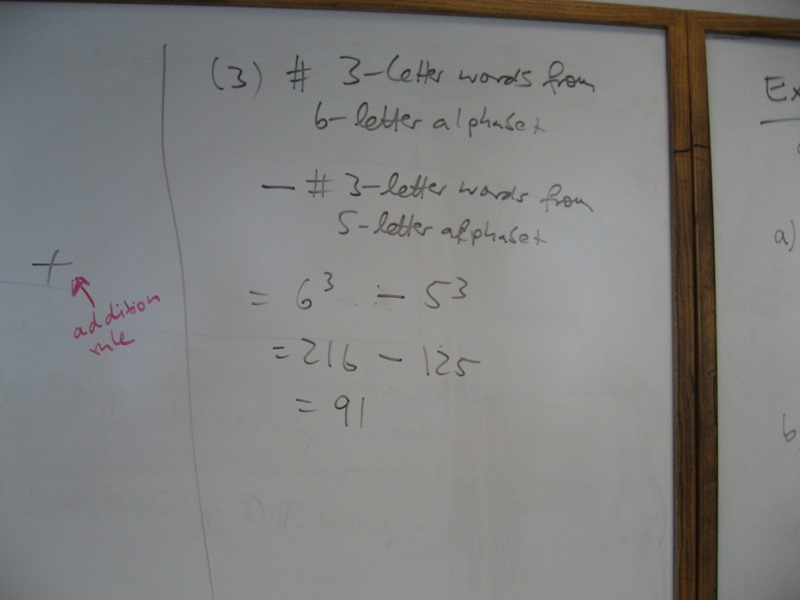 (3) # 3-letter words from
6-letter alphabet
- # 3-letter words from
5-letter alphabet
= 6³ - 5³
= 216 - 125
= 91
+
addition
rule
Ex
a)
b